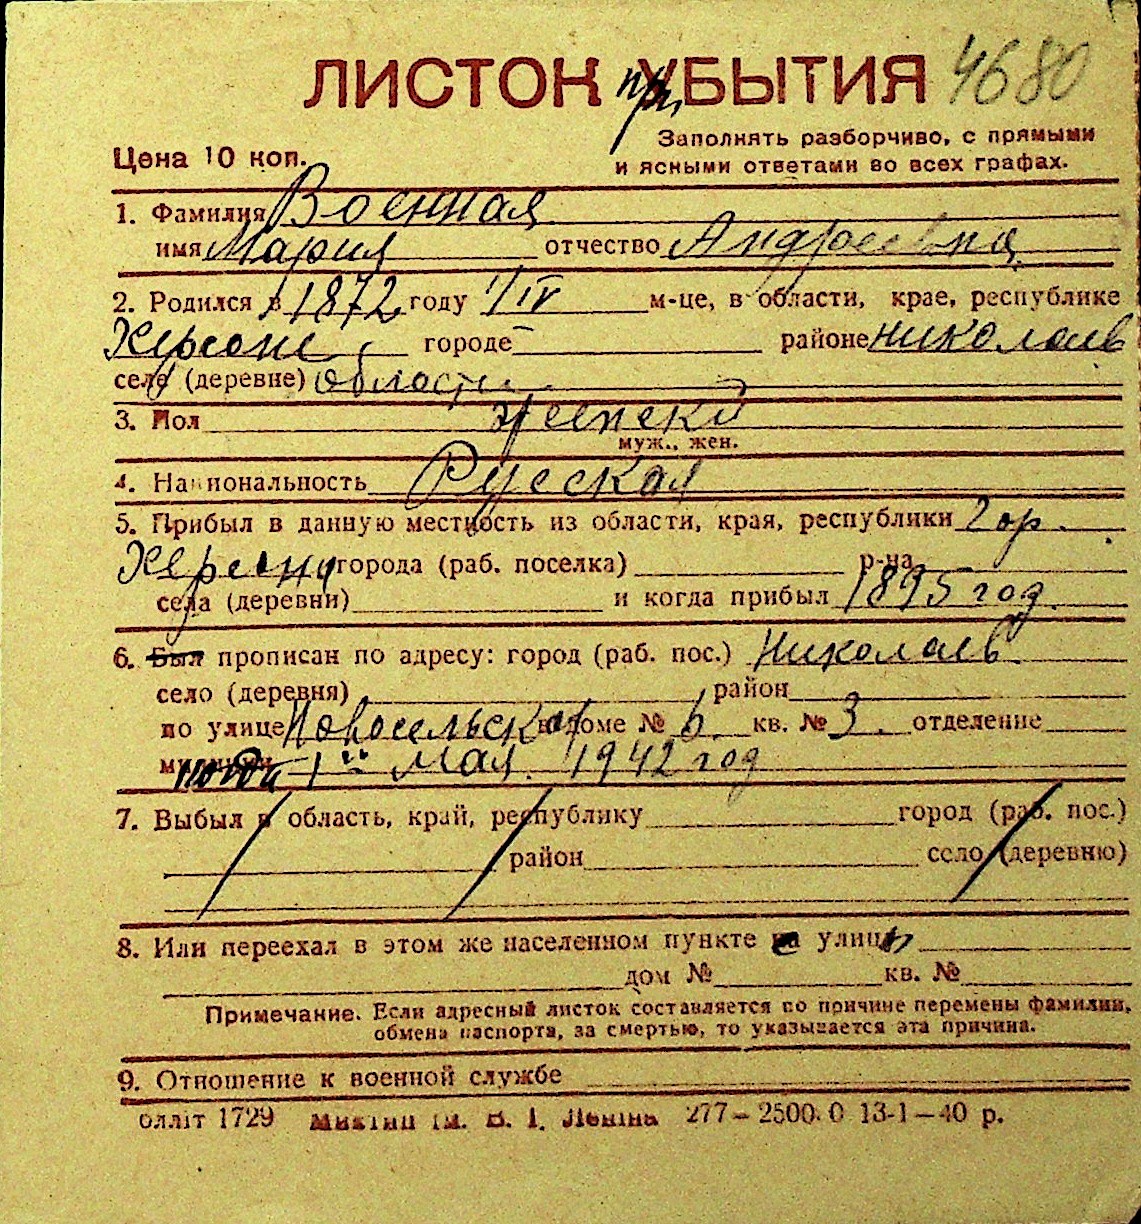 ЛИСТОК при УБЫТИЯ 4680
Цена 10 коп. Заполнять разборчиво, с прямыми
и ясными ответами во всех графах.
1. Фамилия Военная
имя Мария отчество Андреевна
2. Родился в 1872 году 1/IV м-це, в области, крае, республике
Херсоне городе районе Николаев
селе (деревне) области
3. Пол женский
муж., жен.
4. Национальность Русская
5. Прибыл в данную местность из области, края, республики гор.
Херсона города (раб. поселка) р-на
села (деревни) и когда прибыл 1895 год.
6. Был прописан по адресу: город (раб. пос.) Николаев
село (деревня) район
по улице Новосельская в доме № 6. кв. № 3. отделение
милиции 1ᵍᵒ Мая. 1942 год
7. Выбыл в область, край, республику город (раб. пос.)
район село (деревню)
8. Или переехал в этом же населенном пункте на улицу
дом № кв. №
Примечание. Если адресный листок составляется по причине перемены фамилии,
обмена паспорта, за смертью, то указывается эта причина.
9. Отношение к военной службе
блліт 1729 ім. В. І. Леніна 277–2500.0 13-1–40 р.